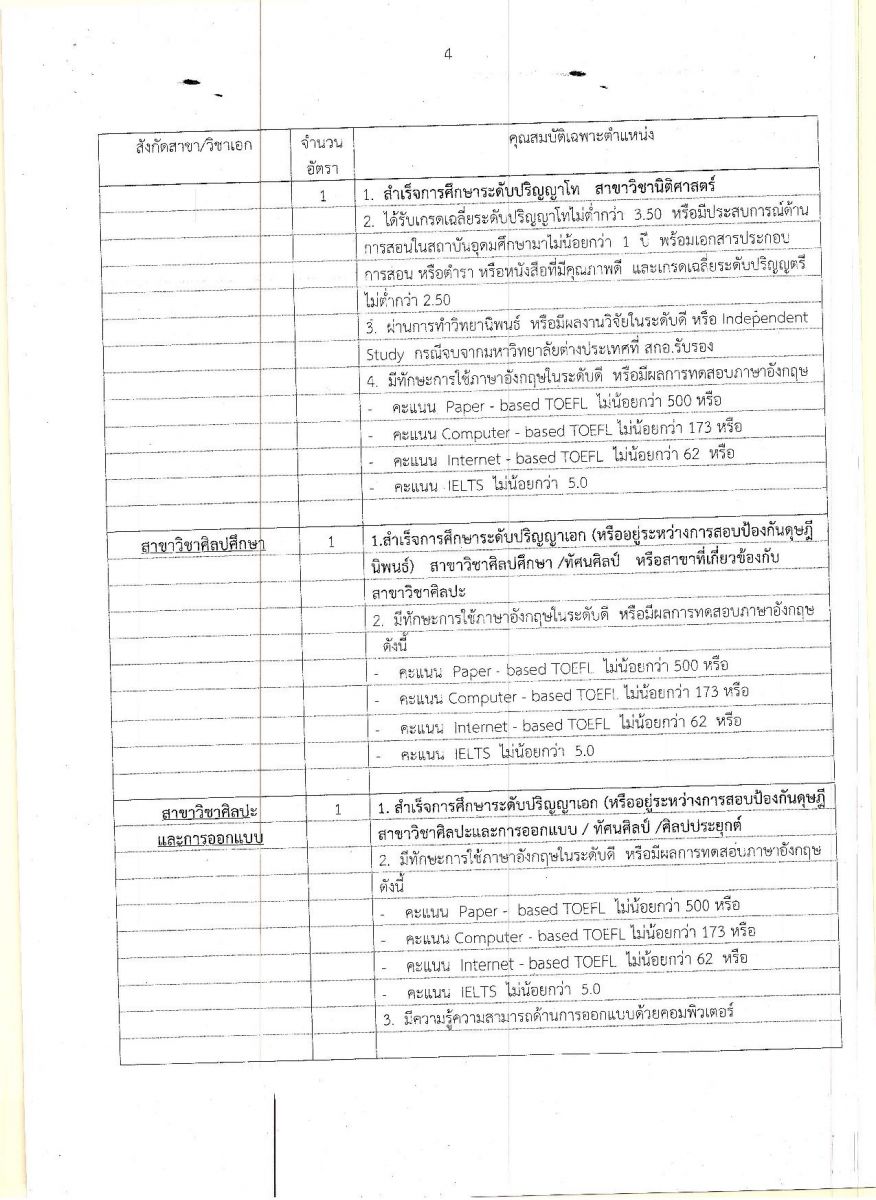 4
สังกัดสาขา/วิชาเอก
จำนวน
อัตรา
คุณสมบัติเฉพาะตำแหน่ง
1
1. สำเร็จการศึกษาระดับปริญญาโท สาขาวิชานิติศาสตร์
2. ได้รับเกรดเฉลี่ยระดับปริญญาโทไม่ต่ำกว่า 3.50 หรือมีประสบการณ์ด้าน
การสอนในสถาบันอุดมศึกษามาไม่น้อยกว่า 1 ปี พร้อมเอกสารประกอบ
การสอน หรือตำรา หรือหนังสือที่มีคุณภาพดี และเกรดเฉลี่ยระดับปริญญตรี
ไม่ต่ำกว่า 2.50
3. ผ่านการทำวิทยานิพนธ์ หรือมีผลงานวิจัยในระดับดี หรือ Independent
Study กรณีจบจากมหาวิทยาลัยต่างประเทศที่ สกอ.รับรอง
4. มีทักษะการใช้ภาษาอังกฤษในระดับดี หรือมีผลการทดสอบภาษาอังกฤษ
- คะแนน Paper - based TOEFL ไม่น้อยกว่า 500 หรือ
- คะแนน Computer - based TOEFL ไม่น้อยกว่า 173 หรือ
- คะแนน Internet - based TOEFL ไม่น้อยกว่า 62 หรือ
- คะแนน IELTS ไม่น้อยกว่า 5.0
สาขาวิชาศิลปศึกษา
1
1.สำเร็จการศึกษาระดับปริญญาเอก (หรืออยู่ระหว่างการสอบป้องกันดุษฎี
นิพนธ์) สาขาวิชาศิลปศึกษา /ทัศนศิลป์ หรือสาขาที่เกี่ยวข้องกับ
สาขาวิชาศิลปะ
2. มีทักษะการใช้ภาษาอังกฤษในระดับดี หรือมีผลการทดสอบภาษาอังกฤษ
ดังนี้
- คะแนน Paper - based TOEFL ไม่น้อยกว่า 500 หรือ
- คะแนน Computer - based TOEFL ไม่น้อยกว่า 173 หรือ
- คะแนน Internet - based TOEFL ไม่น้อยกว่า 62 หรือ
- คะแนน IELTS ไม่น้อยกว่า 5.0
สาขาวิชาศิลปะ
และการออกแบบ
1
1. สำเร็จการศึกษาระดับปริญญาเอก (หรืออยู่ระหว่างการสอบป้องกันดุษฎี
สาขาวิชาศิลปะและการออกแบบ / ทัศนศิลป์ /ศิลปประยุกต์
2. มีทักษะการใช้ภาษาอังกฤษในระดับดี หรือมีผลการทดสอบภาษาอังกฤษ
ดังนี้
- คะแนน Paper - based TOEFL ไม่น้อยกว่า 500 หรือ
- คะแนน Computer - based TOEFL ไม่น้อยกว่า 173 หรือ
- คะแนน Internet - based TOEFL ไม่น้อยกว่า 62 หรือ
- คะแนน IELTS ไม่น้อยกว่า 5.0
3. มีความรู้ความสามารถด้านการออกแบบด้วยคอมพิวเตอร์